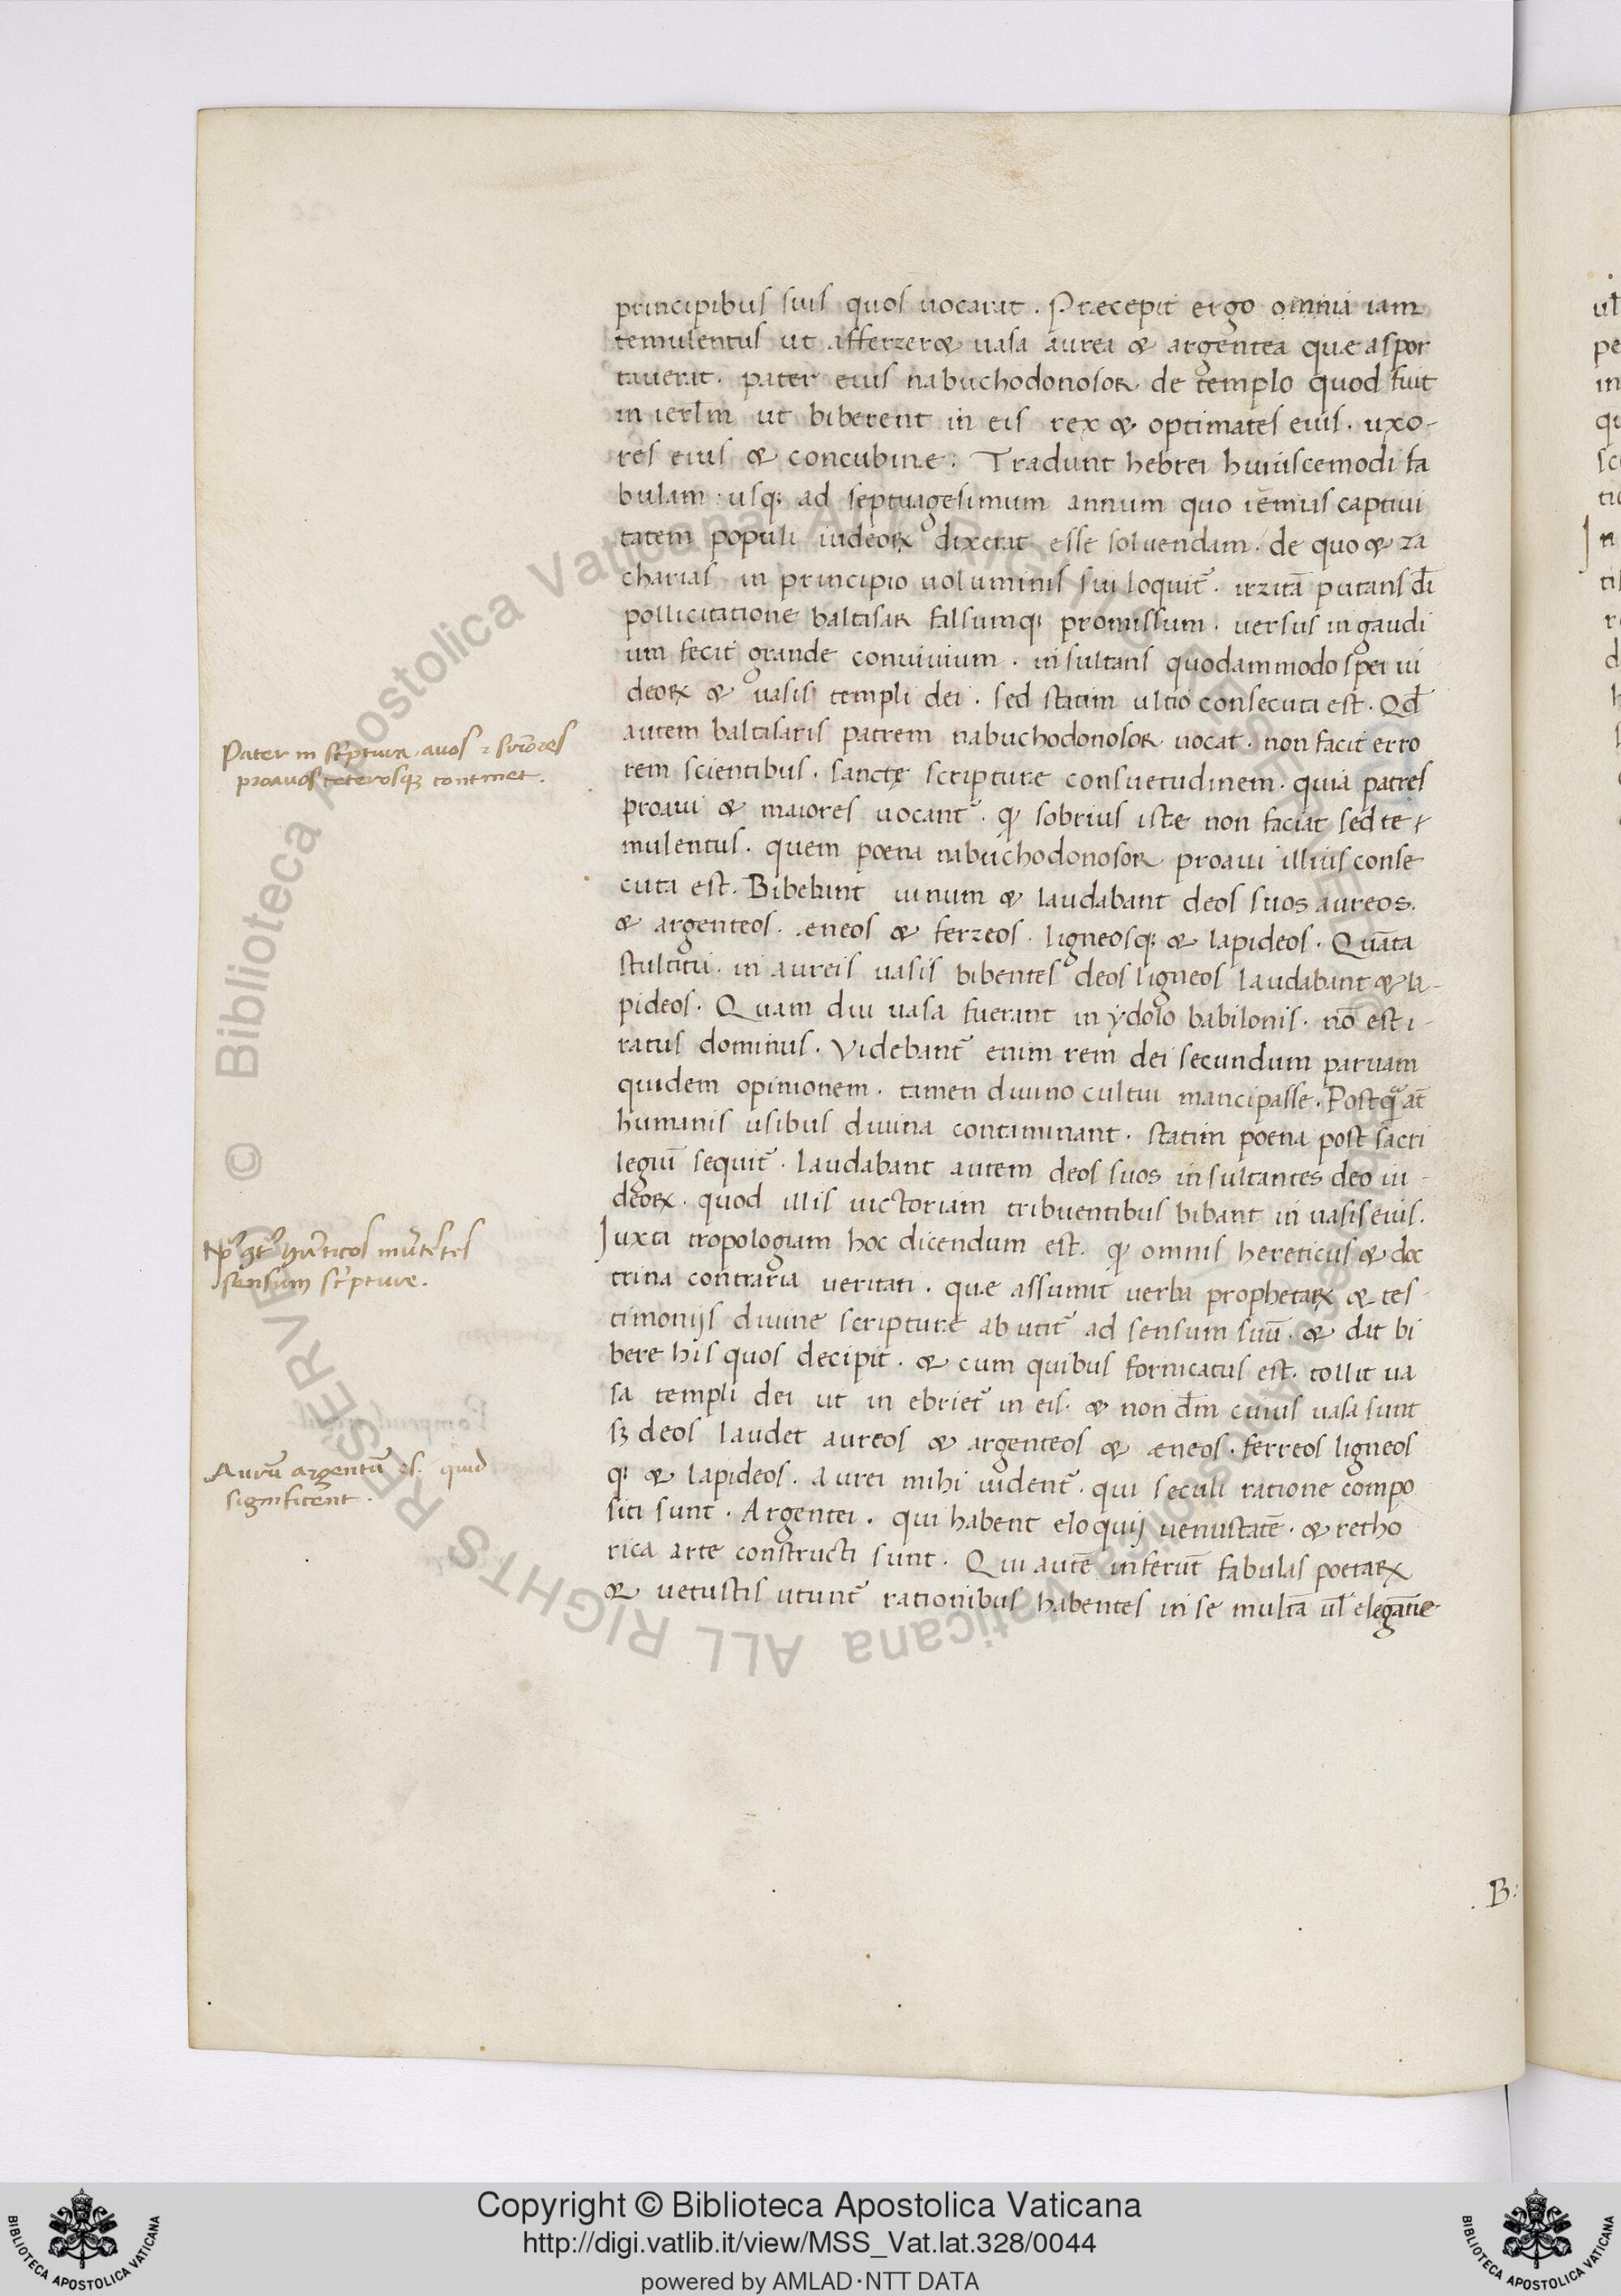 principibus suis quos uocarat. Præcepit ergo omnia iam
temulentus ut afferreræ uasa aurea & argentea quae aspor
tauerat. pater eius nabuchodonosor de templo quod fuit
in ierl̄m ut biberent in eis rex & optimates eius. uxo-
res eius & concubinæ: Tradunt hebrei huiuscemodi fa
bulam. usq; ad septuagesimum annum quo iēmias captiui
tatem populi iudeoꝝ dixerat esse soluendam. de quo & za
charias in principio uoluminis sui loquit̄. irritā putans dī
pollicitatione baltasar falsumq; promissum. uersus in gaudi
um fecit grande conuiuium. insultans quodammodo spei iu
deoꝝ & uasis templi dei. sed statim ultio consecuta est. Qd̄
autem baltasaris patrem nabuchodonosor uocat. non facit erro
rem scientibus. sanctę scripture consuetudinem. quia patres
proaui & maiores uocant̄. ꝙ sobrius iste non faciat sed te
mulentus. quem poena nabuchodonosor proaui illius conse
cuta est. Bibebant uinum & laudabant deos suos aureos.
& argenteos. æneos & ferreos. ligneosq; & lapideos. Quāta
stultitia. in aureis uasis bibentes deos ligneos laudabant & la-
pideos. Quam diu uasa fuerant in ydolo babilonis. nō est i-
ratus dominus. Videbant̄ enim rem dei secundum paruam
quidem opinionem. tamen diuino cultui mancipasse. Postq̄ aūt
humanis usibus diuina contaminant. statim poena post sacri
legiū sequit̄. laudabant autem deos suos insultantes deo iu-
deoꝝ. quod illis uictoriam tribuentibus bibant in uasis eius.
Iuxta tropologiam hoc dicendum est. ꝙ omnis hereticus & doc
trina contraria ueritati. quæ assumit uerba prophetaꝝ & tes-
timonijs diuine scripture abutit̄ ad sensum suū. & dat bi
bere his quos decipit. & cum quibus fornicatus est. tollit ua
sa templi dei ut in ebriet̄ in eis. & non dm̄ cuius uasa sunt
sꝫ deos laudet aureos & argenteos & æneos. ferreos ligneos
q; & lapideos. aurei mihi uident̄. qui seculi ratione compo
siti sunt. Argentei. qui habent eloquij uenustatē. & retho
rica arte constructi sunt. Qui autē inferūt fabulas poetaꝝ
& uetustis utunt̄ rationibus habentes in se multā ul̄ elegātie
Pater in sc̄ptura. auos
proauos ceterosqꝫ continet.
hr̄eticos mūtētes
sensum sc̄pture.
Aurū argentū es. quid
significent.
B:
© Biblioteca Apostolica Vaticana ALL RIGHTS RESERVED
Copyright © Biblioteca Apostolica Vaticana
http://digi.vatlib.it/view/MSS_Vat.lat.328/0044
powered by AMLAD·NTT DATA
BIBLIOTECA APOSTOLICA VATICANA
BIBLIOTECA APOSTOLICA VATICANA